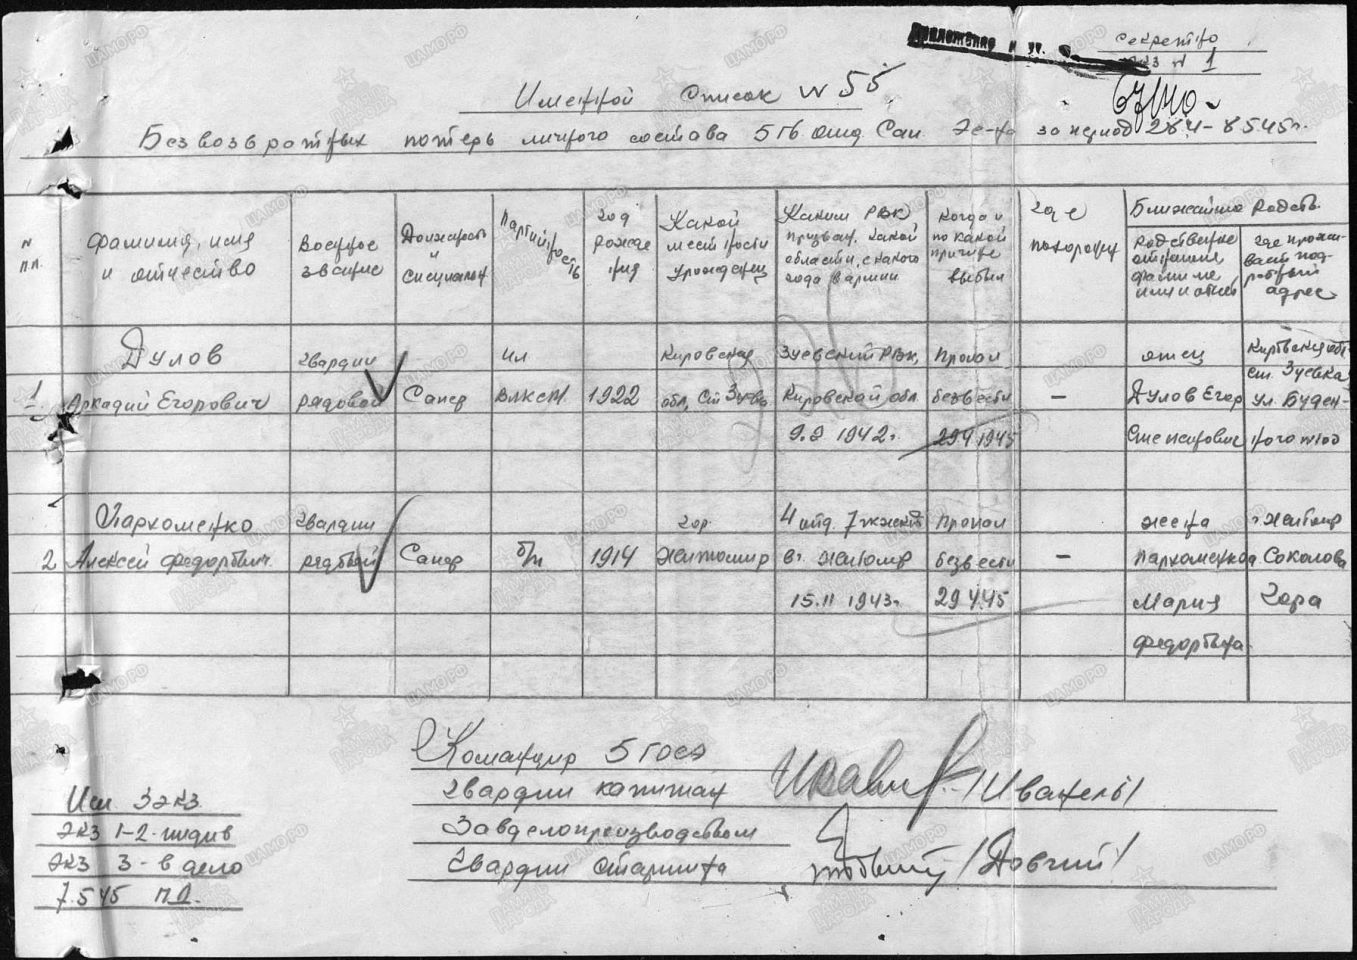 Секретно
экз N 1
Именной список N 55
Безвозвратных потерь личного состава 5 Гв. отд. Сап. за период 28.4-8.5.45 г.
N п.п.
Фамилия, имя и отчество
Военное звание
Должность и специальност
Партийность
Год рождения
Какой местности уроженец
Каким РВК призван, какой области, с какого года в армии
Когда и по какой причине выбыл
Где похоронен
Ближайшие Родств.
Родственные отношения фамилие имя и отчес
Где проживает подробный адрес
1
Дулов Аркадий Егорович
Гвардии рядовой
Сапер
Чл ВЛКСМ
1922
Кировская обл, ст Зуевка
Зуевский РВК, Кировской обл 9.9 1942 г
Пропал безвести 29 4 1945
—
отец Дулов Егор
Кировская обл. ст. Зуевка ул. Буденного N 100
2
Пархоменко Алексей Федорович
Гвардии рядовой
Сапер
б/п
1914
гор Житомир
г. Житомир 15.11 1943 г
Пропал безвести 29 4 45
—
жена Пархоменко Мария Федоровна
г. Житомир Соколова гора
Командир 5 ГОСЭ
Гвардии капитан /Иванель/
Завделопроизводством
Гвардии старшина /Довгий/
Исп 3 экз.
Экз 1-2-
Экз 3-в дело
7.5 45
ЦАМО.РФ
ПАМЯТЬ НАРОДА